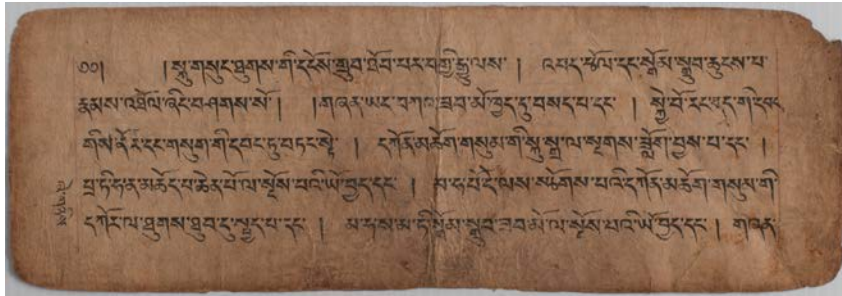 ༄༅། །སྐུ་གསུང་ཐུགས་གི་དངོས་གྲུབ་ཐོབ་པར་བགྱི་རྒྱུ་ལས་ ། འཔད་ཙོལ་དང་སྒོམ་སྒྲུབ་ཆུངས་པ་
རྣམས་འཐོལ་ཞིང་བཤགས་སོ། །གཞན་ཡང་བཀའ་ཟབ་མོ་ཁྱད་དུ་བསད་པ་དང་ ། སྐྱེ་བོ་རང་ཕྱད་གི་དབང་
གིས་ནོར་དང་གསུག་གི་དབང་ཏུ་བཏང་སྟེ་ ། དཀོན་མཆོག་གསུམ་གི་སྐུ་སྒྲ་ལ་སྔགས་ཟློག་བྱས་པ་དང་ །
པྲ་ཏི་ཧན་མཆོད་པ་ཆེན་པོ་ལ་སྔོས་པའི་ཡོ་བྱད་དང་ ། མ་ཧ་པེ་དེ་ལས་སྩོགས་པའི་དཀོན་མཆོག་གསུམ་གི་
དཀོར་ལ་ཐུགས་ཐུབ་དུ་སྤྱད་པ་དང་ ། མ་དམ་མ་ཏི་སྒོམ་སྒྲུབ་ཟབ་མོ་ལ་སྔོས་པའི་ཡོ་བྱད་དང་ ། གཞན་